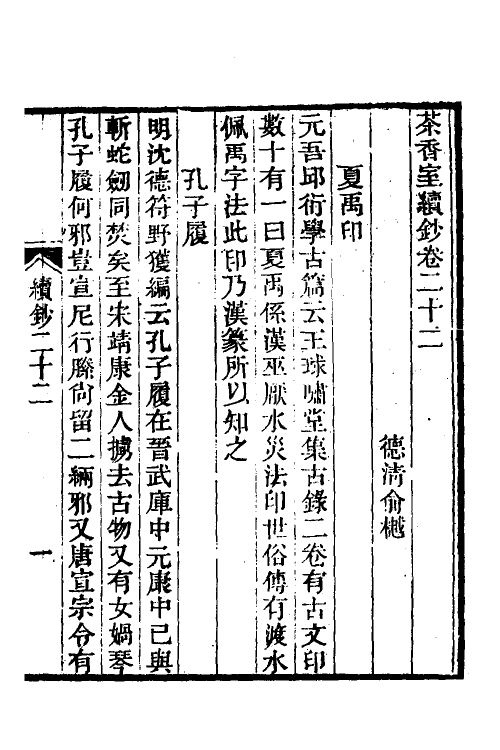 茶香室續鈔卷二十二
德清俞樾
夏禹印
元吾邱衍學古篇云王球嘯堂集古錄二卷有古文印
數十有一曰夏禹係漢巫厭水災法印世俗傳有渡水
佩禹字法此印乃漢篆所以知之
孔子履
明沈德符野獲編云孔子履在晉武庫中元康中已與
斬蛇劒同焚矣至宋靖康金人擄去古物又有女媧琴
孔子履何邪豈宣尼行縢尙留二緉邪又唐宣宗令有
續鈔二十二
一